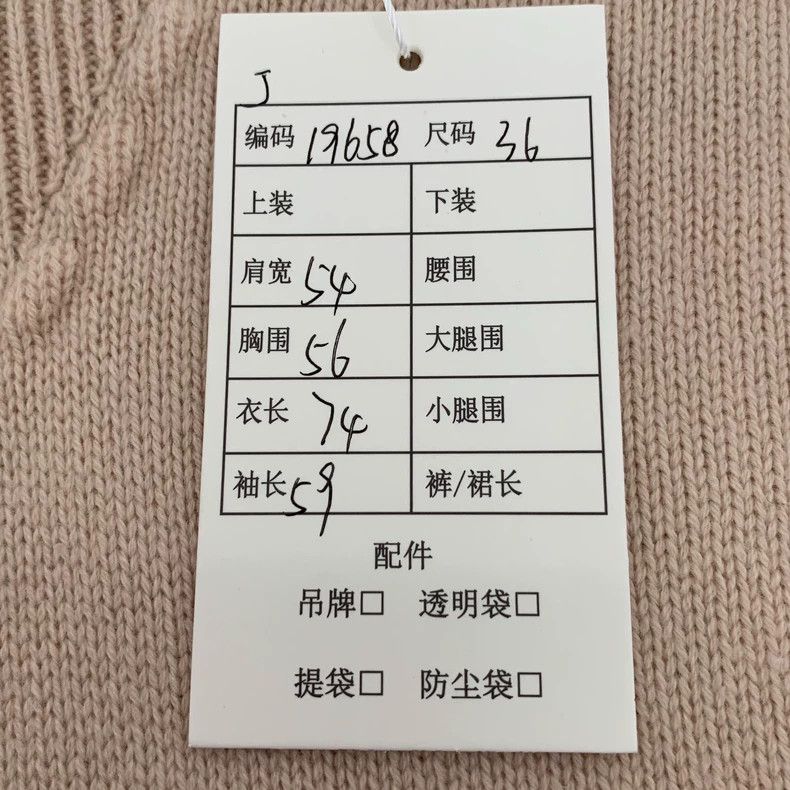 J
编码 19658 尺码 36
上装 下装
肩宽 54 腰围
胸围 56 大腿围
衣长 74 小腿围
袖长 59 裤/裙长
配件
吊牌□ 透明袋□
提袋□ 防尘袋□